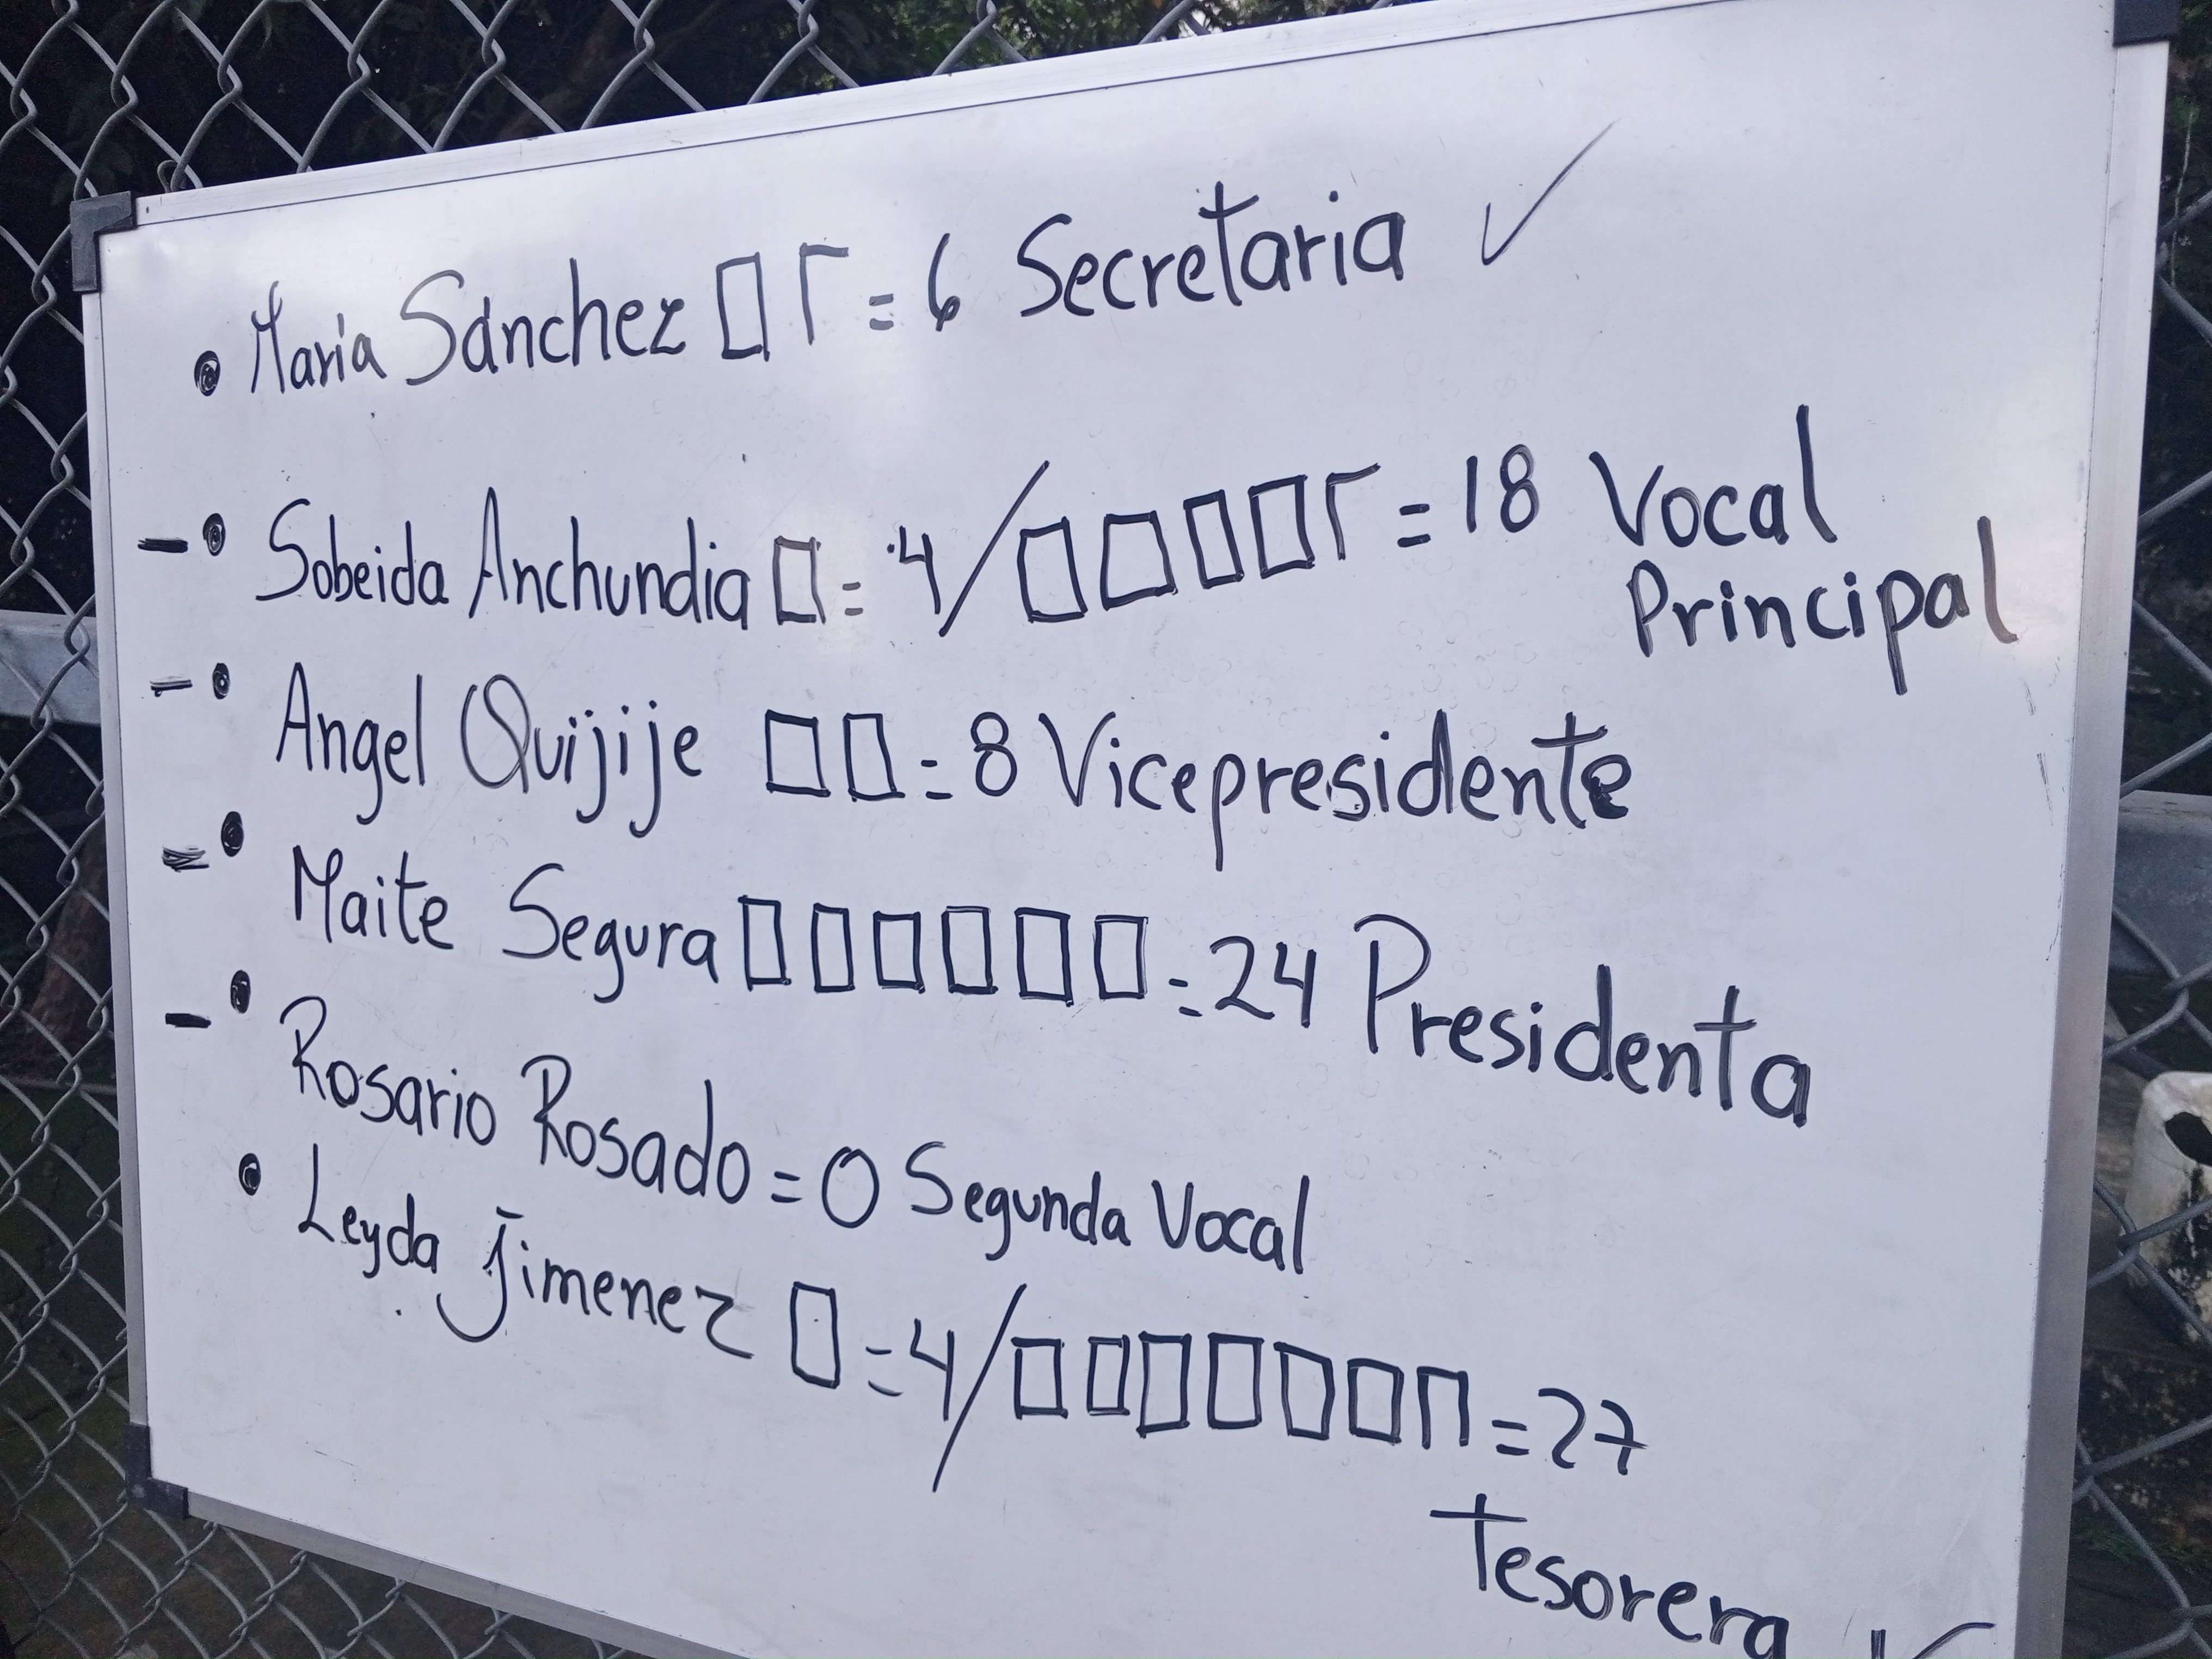 • Maria Sánchez □ Γ = 6 Secretaria ✓
- • Sobeida Anchundia □ = 4 / □ □ □ □ Γ = 18 Vocal
Principal
- • Angel Quijije □ □ = 8 Vicepresidente
- • Maite Segura □ □ □ □ □ □ = 24 Presidenta
- • Rosario Rosado = 0 Segunda Vocal
• Leyda Jimenez □ = 4 / □ □ □ □ □ □ Π = 27
Tesorera ✓